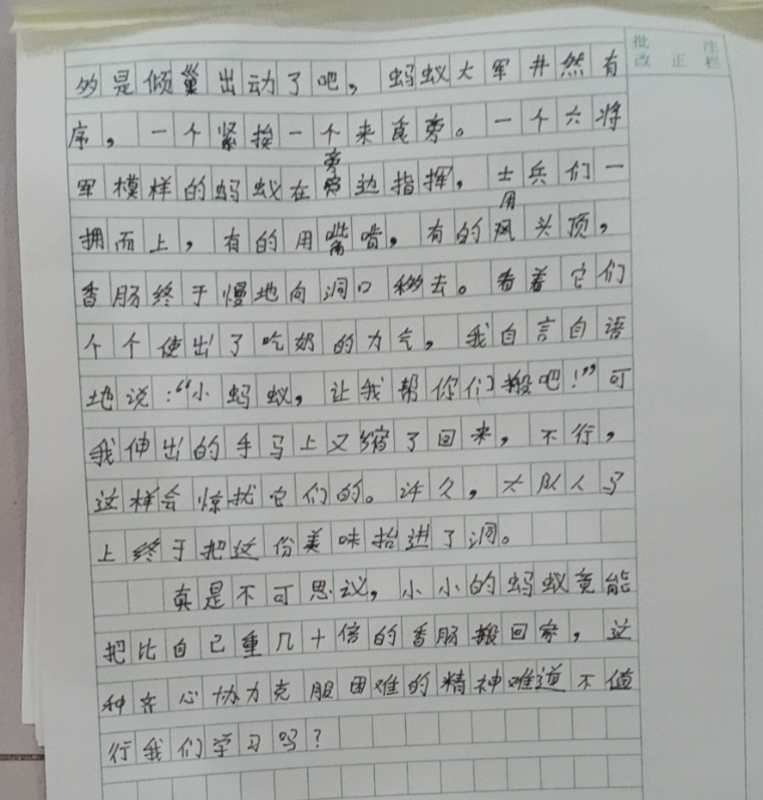 批注
改正栏
的是倾巢出动了吧，蚂蚁大军井然有
序，一个紧挨一个来食旁。一个大将
军模样的蚂蚁在旁边指挥，士兵们一
拥而上，有的用嘴啃，有的用头顶，
香肠终于慢地向洞口移去。看着它们
个个使出了吃奶的力气，我自言自语
地说：“小蚂蚁，让我帮你们搬吧！”可
我伸出的手马上又缩了回来，不行，
这样会惊扰它们的。许久，大队人马
上终于把这份美味抬进了洞。
真是不可思议，小小的蚂蚁竟能
把比自己重几十倍的香肠搬回家，这
种齐心协力克服困难的精神难道不值
行我们学习吗？